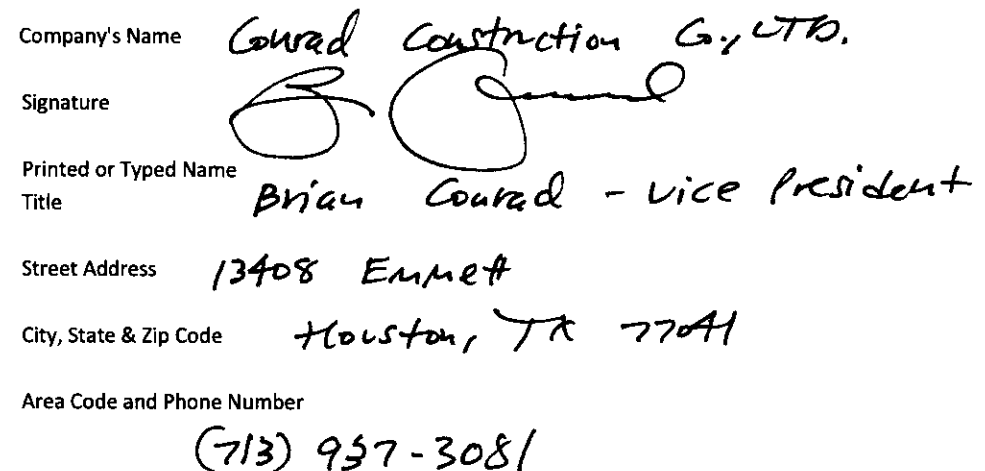 Company's Name Conrad Construction Co., LTD.
Signature
Printed or Typed Name
Title Brian Conrad - Vice President
Street Address 13408 Emmett
City, State & Zip Code Houston, TX 77041
Area Code and Phone Number
(713) 937-3081